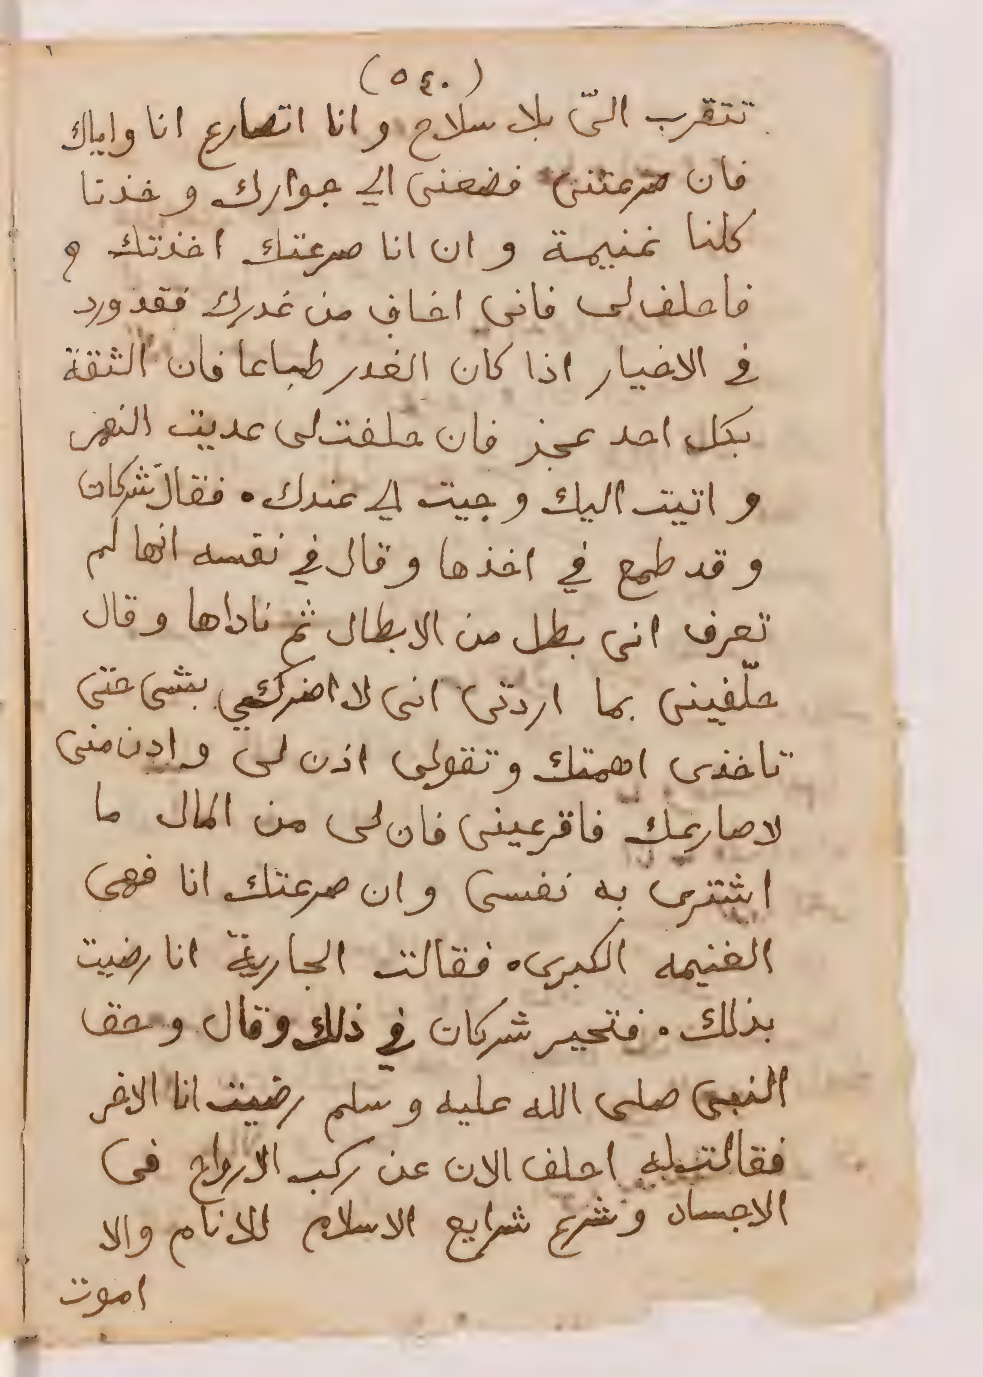 (٥٤٠)
تتقرب اليّ بلا سلاح وانا اتصارع انا واياك
فان صرعتنى فضعنى الي جوارك وخذنا
كلنا غنيمة وان انا صرعتك اخذتك
فاحلف لى فانى اخاف من غدرك فقد ورد
في الاخبار اذا كان الغدر طباعا فان الثقة
بكل احد عجز فان حلفت لى عديت النهر
واتيت اليك وجيت الي عندك • فقال شركان
وقد طمع في اخذها وقال في نفسه انها لم
تعرف انى بطل من الابطال ثم ناداها وقال
حلّفينى بما اردتى انى لا اضركي بشى حتى
تاخذى اهمتك وتقولى اذن لى وادن منى
لاصارعك فاقرعينى فان لى من المال ما
اشترى به نفسى وان صرعتك انا فهى
الغنيمه الكبرى • فقالت الجارية انا رضيت
بذلك • فتحير شركان في ذلك وقال وحق
النبى صلى الله عليه وسلم رضيت انا الاخر
فقالت له احلف الان عن ركب الارواح فى
الاجساد وشرع شرايع الاسلام للانام والا
اموت